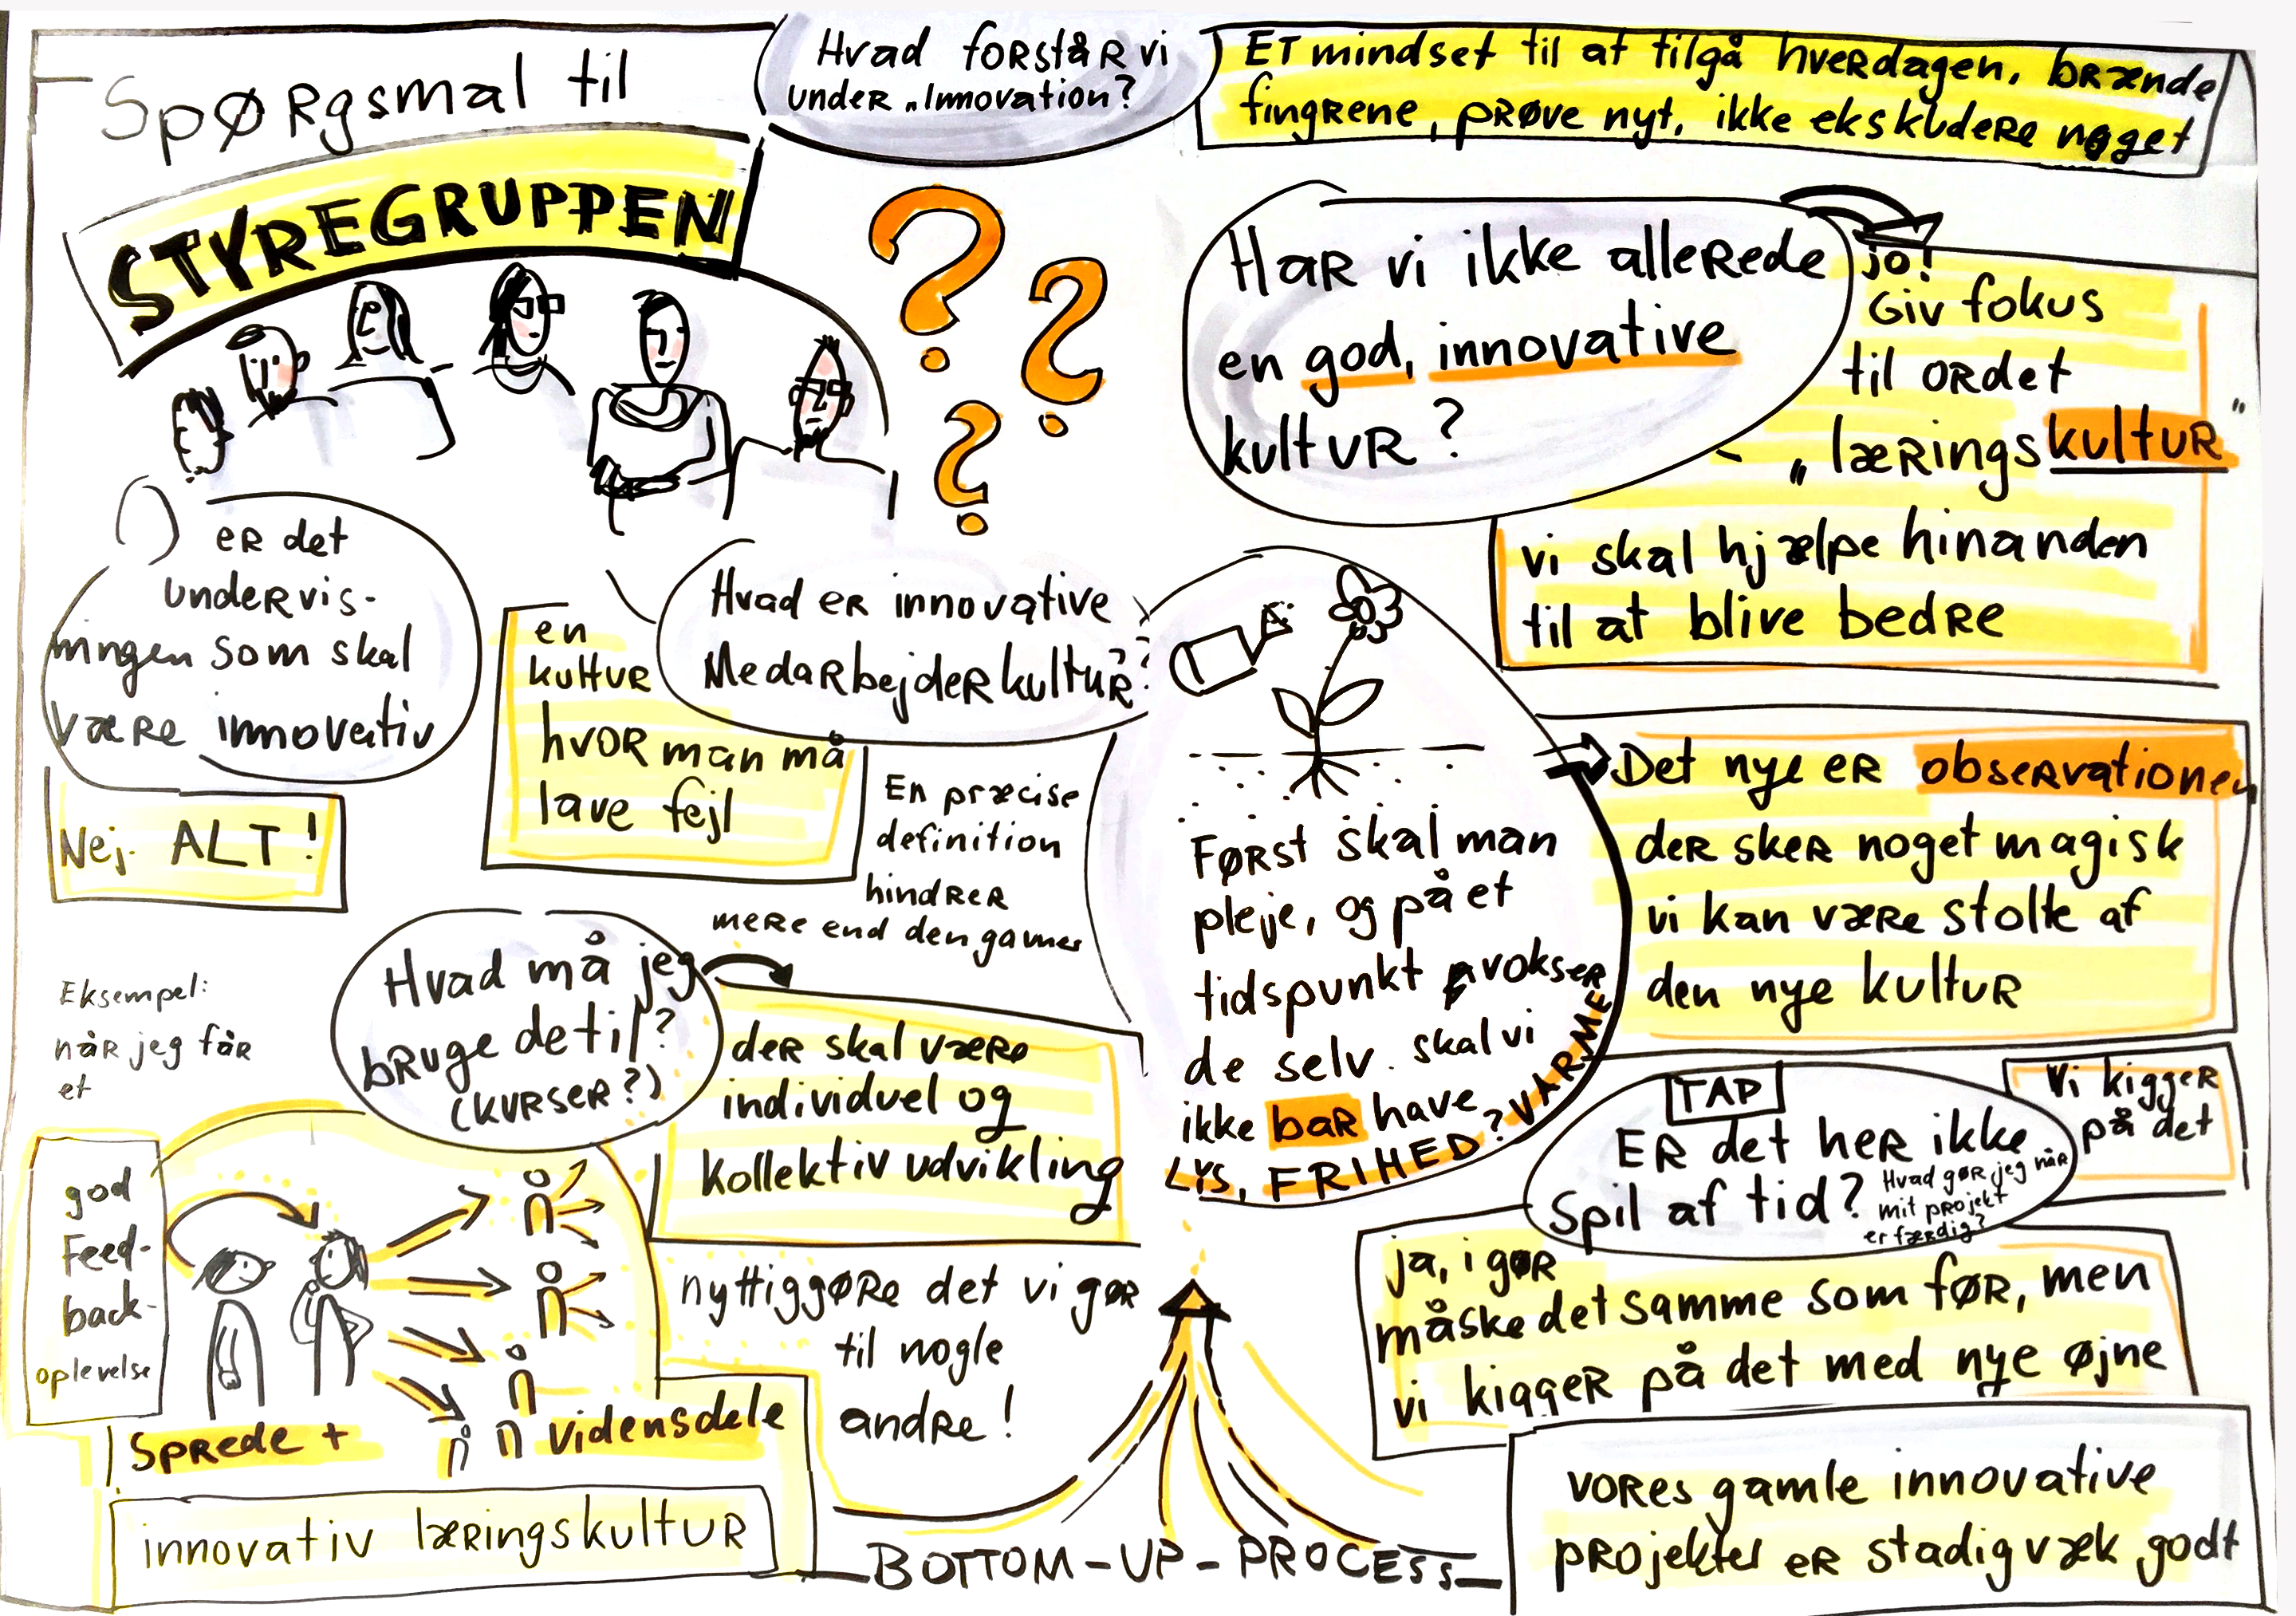 Spørgsmal til
STYREGRUPPEN
Hvad forstår vi
under „Innovation?
Et mindset til at tilgå hverdagen, brænde
fingrene, prøve nyt, ikke ekskludere noget
Har vi ikke allerede
en god, innovative
kultur?
jo!
Giv fokus
til ordet
„læringskultur"
vi skal hjælpe hinanden
til at blive bedre
er det
undervis-
ningen som skal
være innovativ
Nej. ALT!
Hvad er innovative
Medarbejderkultur??
en
kultur
hvor man må
lave fejl
En præcise
definition
hindrer
mere end den gavner
Først skal man
pleje, og på et
tidspunkt vokser
de selv. skal vi
ikke bar have
LYS, FRIHED? VARME
Det nye er observationen
der sker noget magisk
vi kan være stolte af
den nye kultur
Hvad må jeg
bruge detil?
(kurser?)
der skal være
individuel og
kollektiv udvikling
nyttiggøre det vi gør
til nogle
andre!
Eksempel:
når jeg får
et
god
Feed-
back-
oplevelse
Sprede + vidensdele
innovativ læringskultur
TAP
Er det her ikke
Spil af tid?
Hvad gør jeg når
mit projekt
er færdig?
Vi kigger
på det
ja, i gør
måske det samme som før, men
vi kigger på det med nye øjne
vores gamle innovative
projekter er stadig væk godt
BOTTOM-UP-PROCESS